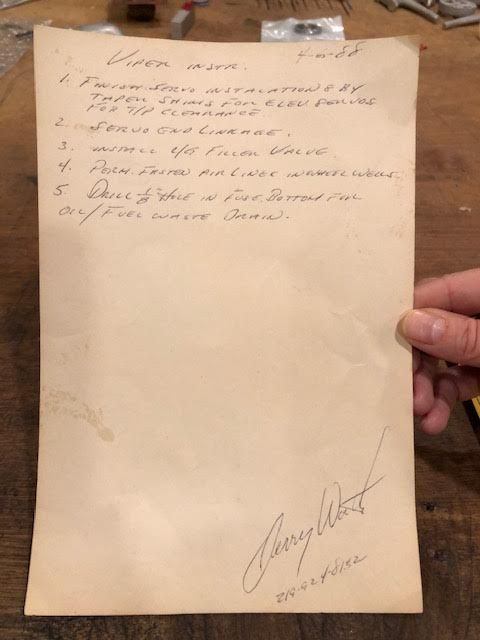 VIPER INSTR. 4-6-88
1. FINISH SERVO INSTALATIONS BY
TAPER SHIMS FOR ELEV SERVOS
FOR T/P CLEARANCE.
2. SERVO END LINKAGE.
3. INSTALL L/G FILLER VALVE
4. PERM. FASTEN AIR LINES IN WHEEL WELLS.
5. DRILL 1/8" HOLE IN FUSE. BOTTOM FOR
OIL/FUEL WASTE DRAIN.
Jerry Watt
219-924-8152